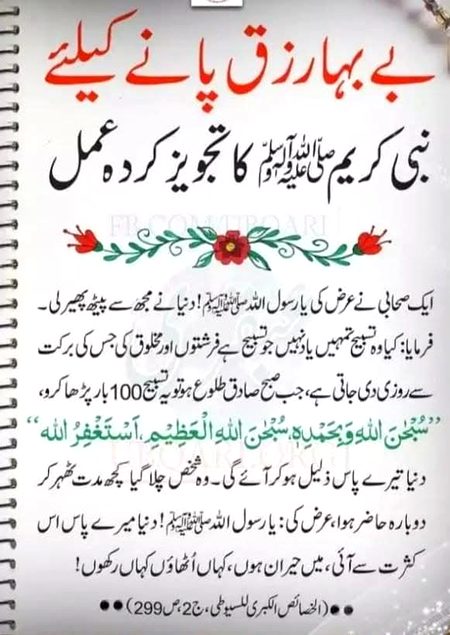 بے بہا رزق پانے کیلئے
نبی کریم ﷺ کا تجویز کردہ عمل
ایک صحابی نے عرض کی یا رسول اللہ ﷺ! دنیا نے مجھ سے پیٹھ پھیر لی۔
فرمایا: کیا وہ تسبیح تمہیں یاد نہیں جو تسبیح ہے فرشتوں اور مخلوق کی جس کی برکت
سے روزی دی جاتی ہے، جب صبح صادق طلوع ہو تو یہ تسبیح 100 بار پڑھا کرو،
”سُبْحٰنَ اللهِ وَبِحَمْدِهٖ، سُبْحٰنَ اللهِ الْعَظِیْمِ، اَسْتَغْفِرُ الله“
دنیا تیرے پاس ذلیل ہو کر آئے گی۔ وہ شخص چلا گیا کچھ مدت ٹھہر کر
دوبارہ حاضر ہوا، عرض کی: یا رسول اللہ ﷺ! دنیا میرے پاس اس
کثرت سے آئی، میں حیران ہوں، کہاں اُٹھاؤں کہاں رکھوں!
(الخصائص الکبری للسیوطی، ج2، ص299)